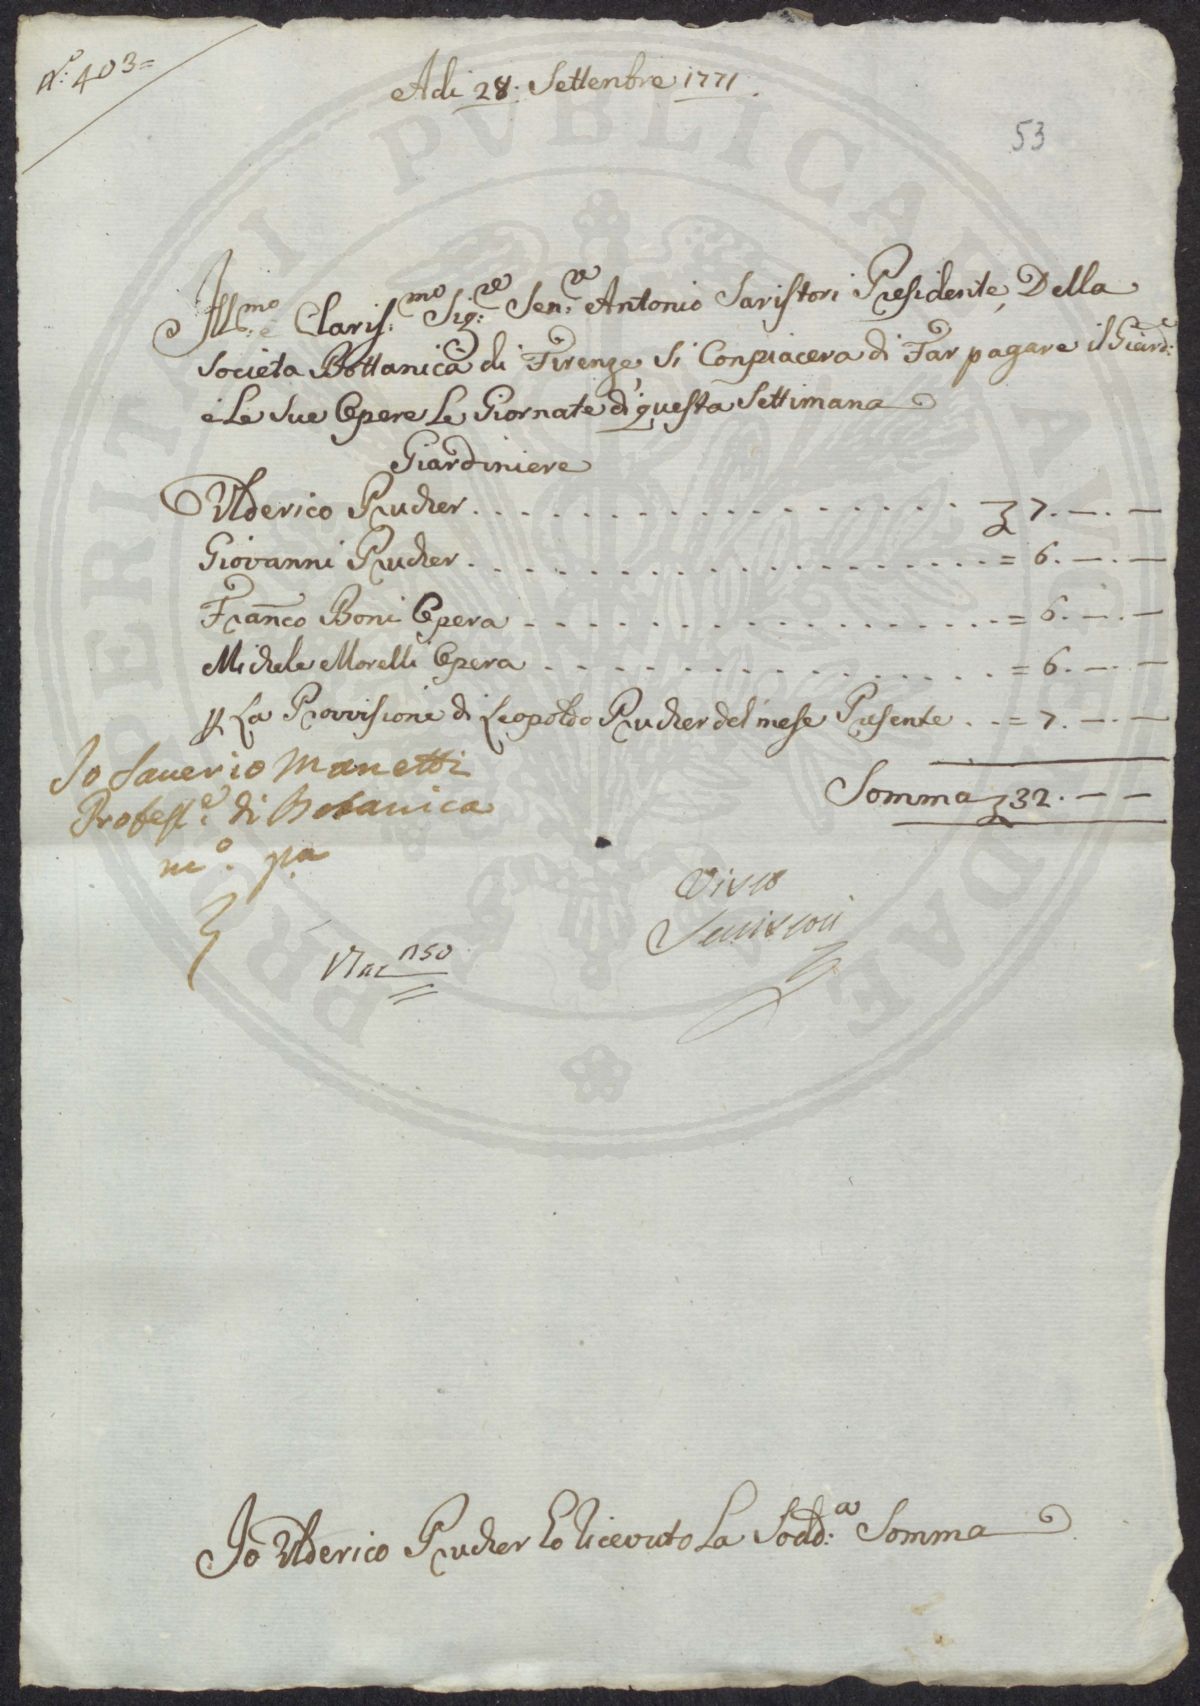 N.º 403=
Adi 28. Settenbre 1771
53
Ill.mo e Claris.mo Sig.re Sen.re Antonio Saristori Presidente Della
Societa Bottanica di Firenze Si Conpiacera di Far pagare il Giard.e
e Le Sue Opere Le Giornate di questa Settimana
Giardiniere
Ulderico Prucher . . . . . . . . . . . . . . . . . . . ʒ 7. — . —
Giovanni Prucher . . . . . . . . . . . . . . . . . . = 6. — . —
Franco Boni Opera . . . . . . . . . . . . . . . . . = 6. — . —
Michele Morelli Opera . . . . . . . . . . . . . . . = 6. — . —
p La Provvisione di Leopoldo Prucher del mese Presente . . = 7. — . —
Somma ʒ 32. — —
Io Saverio Manetti
Profess.e di Botanica
m.o p.a
Visto
Serristori
PROSPERITATI PVBLICAE AVGENDAE
Io Ulderico Prucher Ho Ricevuto La Sodd.a Somma